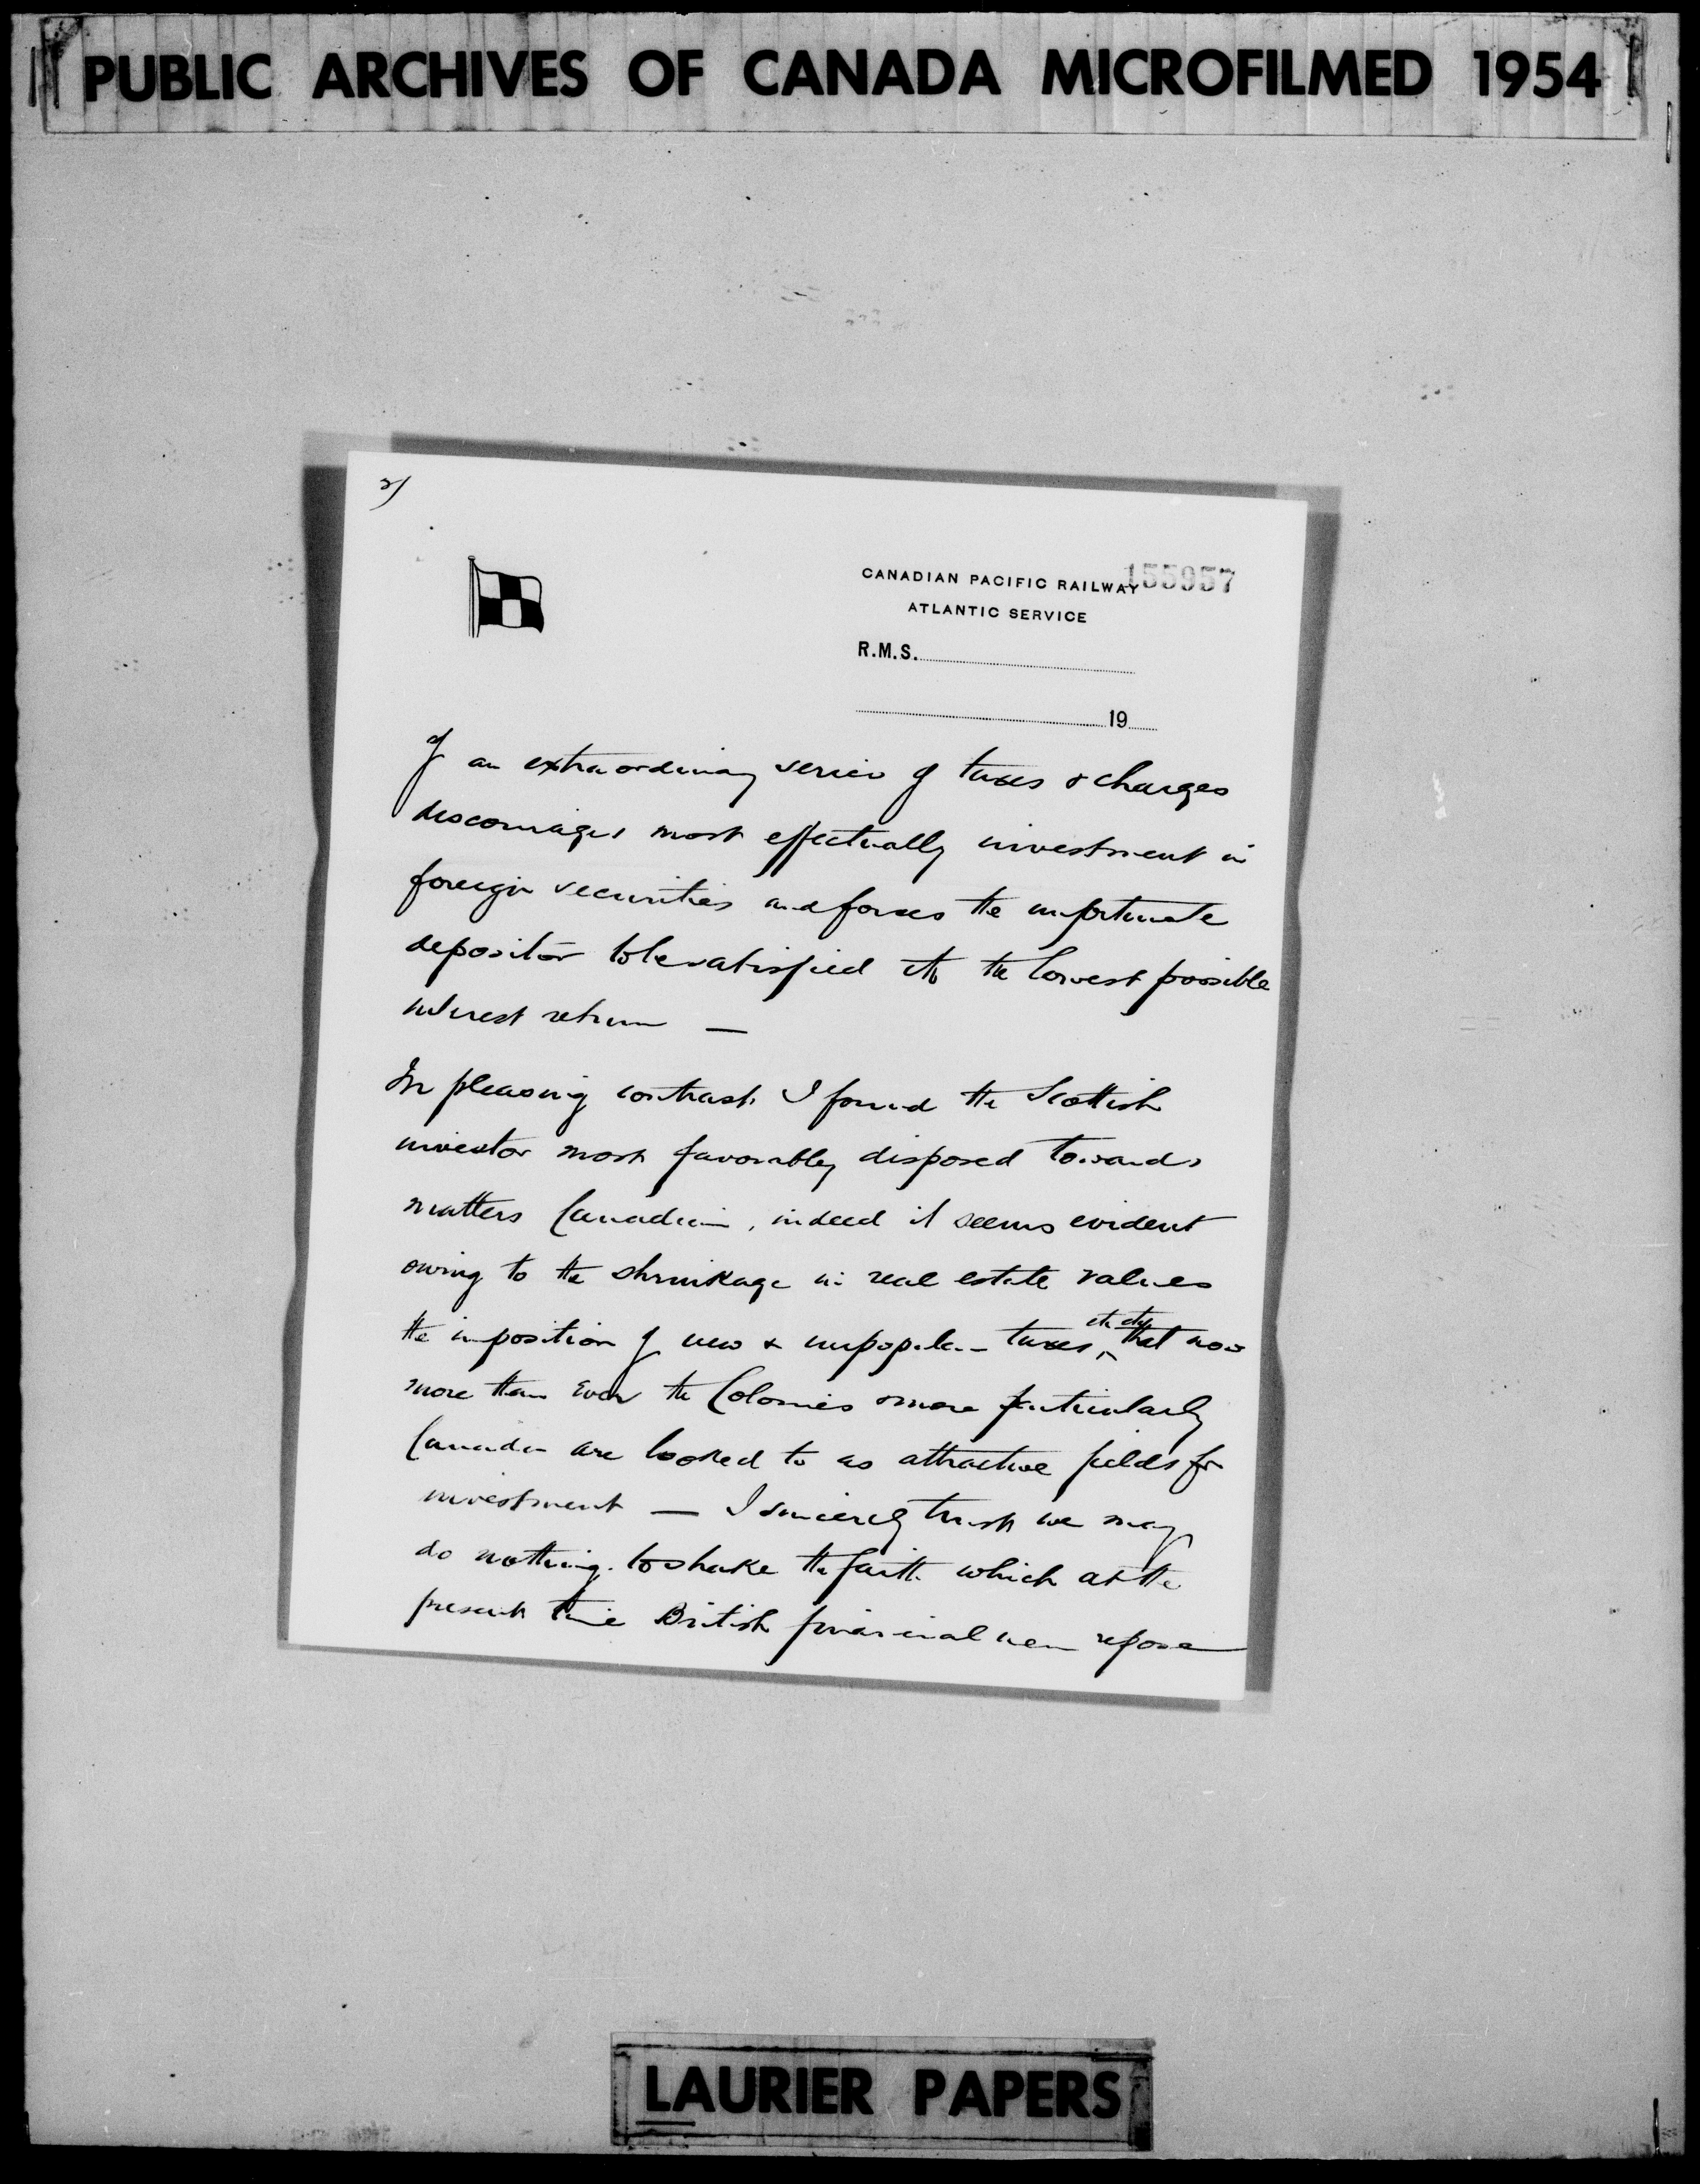 PUBLIC ARCHIVES OF CANADA MICROFILMED 1954
2/
CANADIAN PACIFIC RAILWAY 155957
ATLANTIC SERVICE
R.M.S.
19
of an extraordinary series of taxes & charges
discourages most effectually investment in
foreign securities and forces the unfortunate
depositor to be satisfied with the lowest possible
interest return —
In pleasing contrast I found the Scottish
investor most favorably disposed towards
matters Canadian, indeed it seems evident
owing to the shrinkage in real estate values
the imposition of new & unpopular taxes, etc etc, that now
more than ever the Colonies & more particularly
Canada are looked to as attractive fields for
investment — I sincerely trust we may
do nothing to shake the faith which at the
present time British financial men repose
LAURIER PAPERS